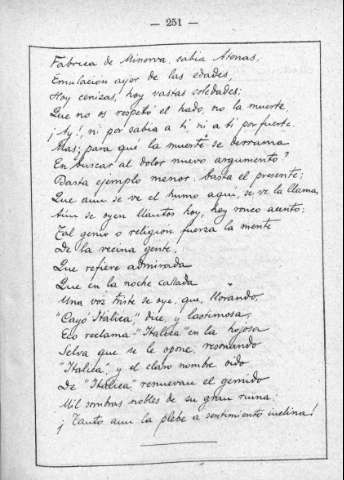 — 251 —
Fábrica de Minerva, sabia Atenas,
Emulación ayer de las edades,
Hoy cenizas, hoy vastas soledades;
Que no os respetó el hado, no la muerte
¡Ay!, ni por sabia a ti, ni a ti por fuerte.
Mas; ¿para que la muente se derrama
En buscar al dolor nuevo argumento?
Basta ejemplo menor, basta el presente;
Que aun se ve el humo aquí, se ve la llama,
Aun se oyen llantos hoy, hoy ronco acento;
Tal genio o religión fuerza la mente
De la vecina gente,
Que refiere admirada
Que en la noche callada
Una voz triste se oye, que, llorando,
"Cayó Itálica", dice, y lastimosa,
Eco reclama "Itálica" en la hojosa
Selva que se le opone, resonando
"Itálica", y el claro nombre oído
De "Itálica" renuevan el gemido
Mil sombras nobles de su gran ruina.
¡Tanto aun la plebe a sentimiento inclina!